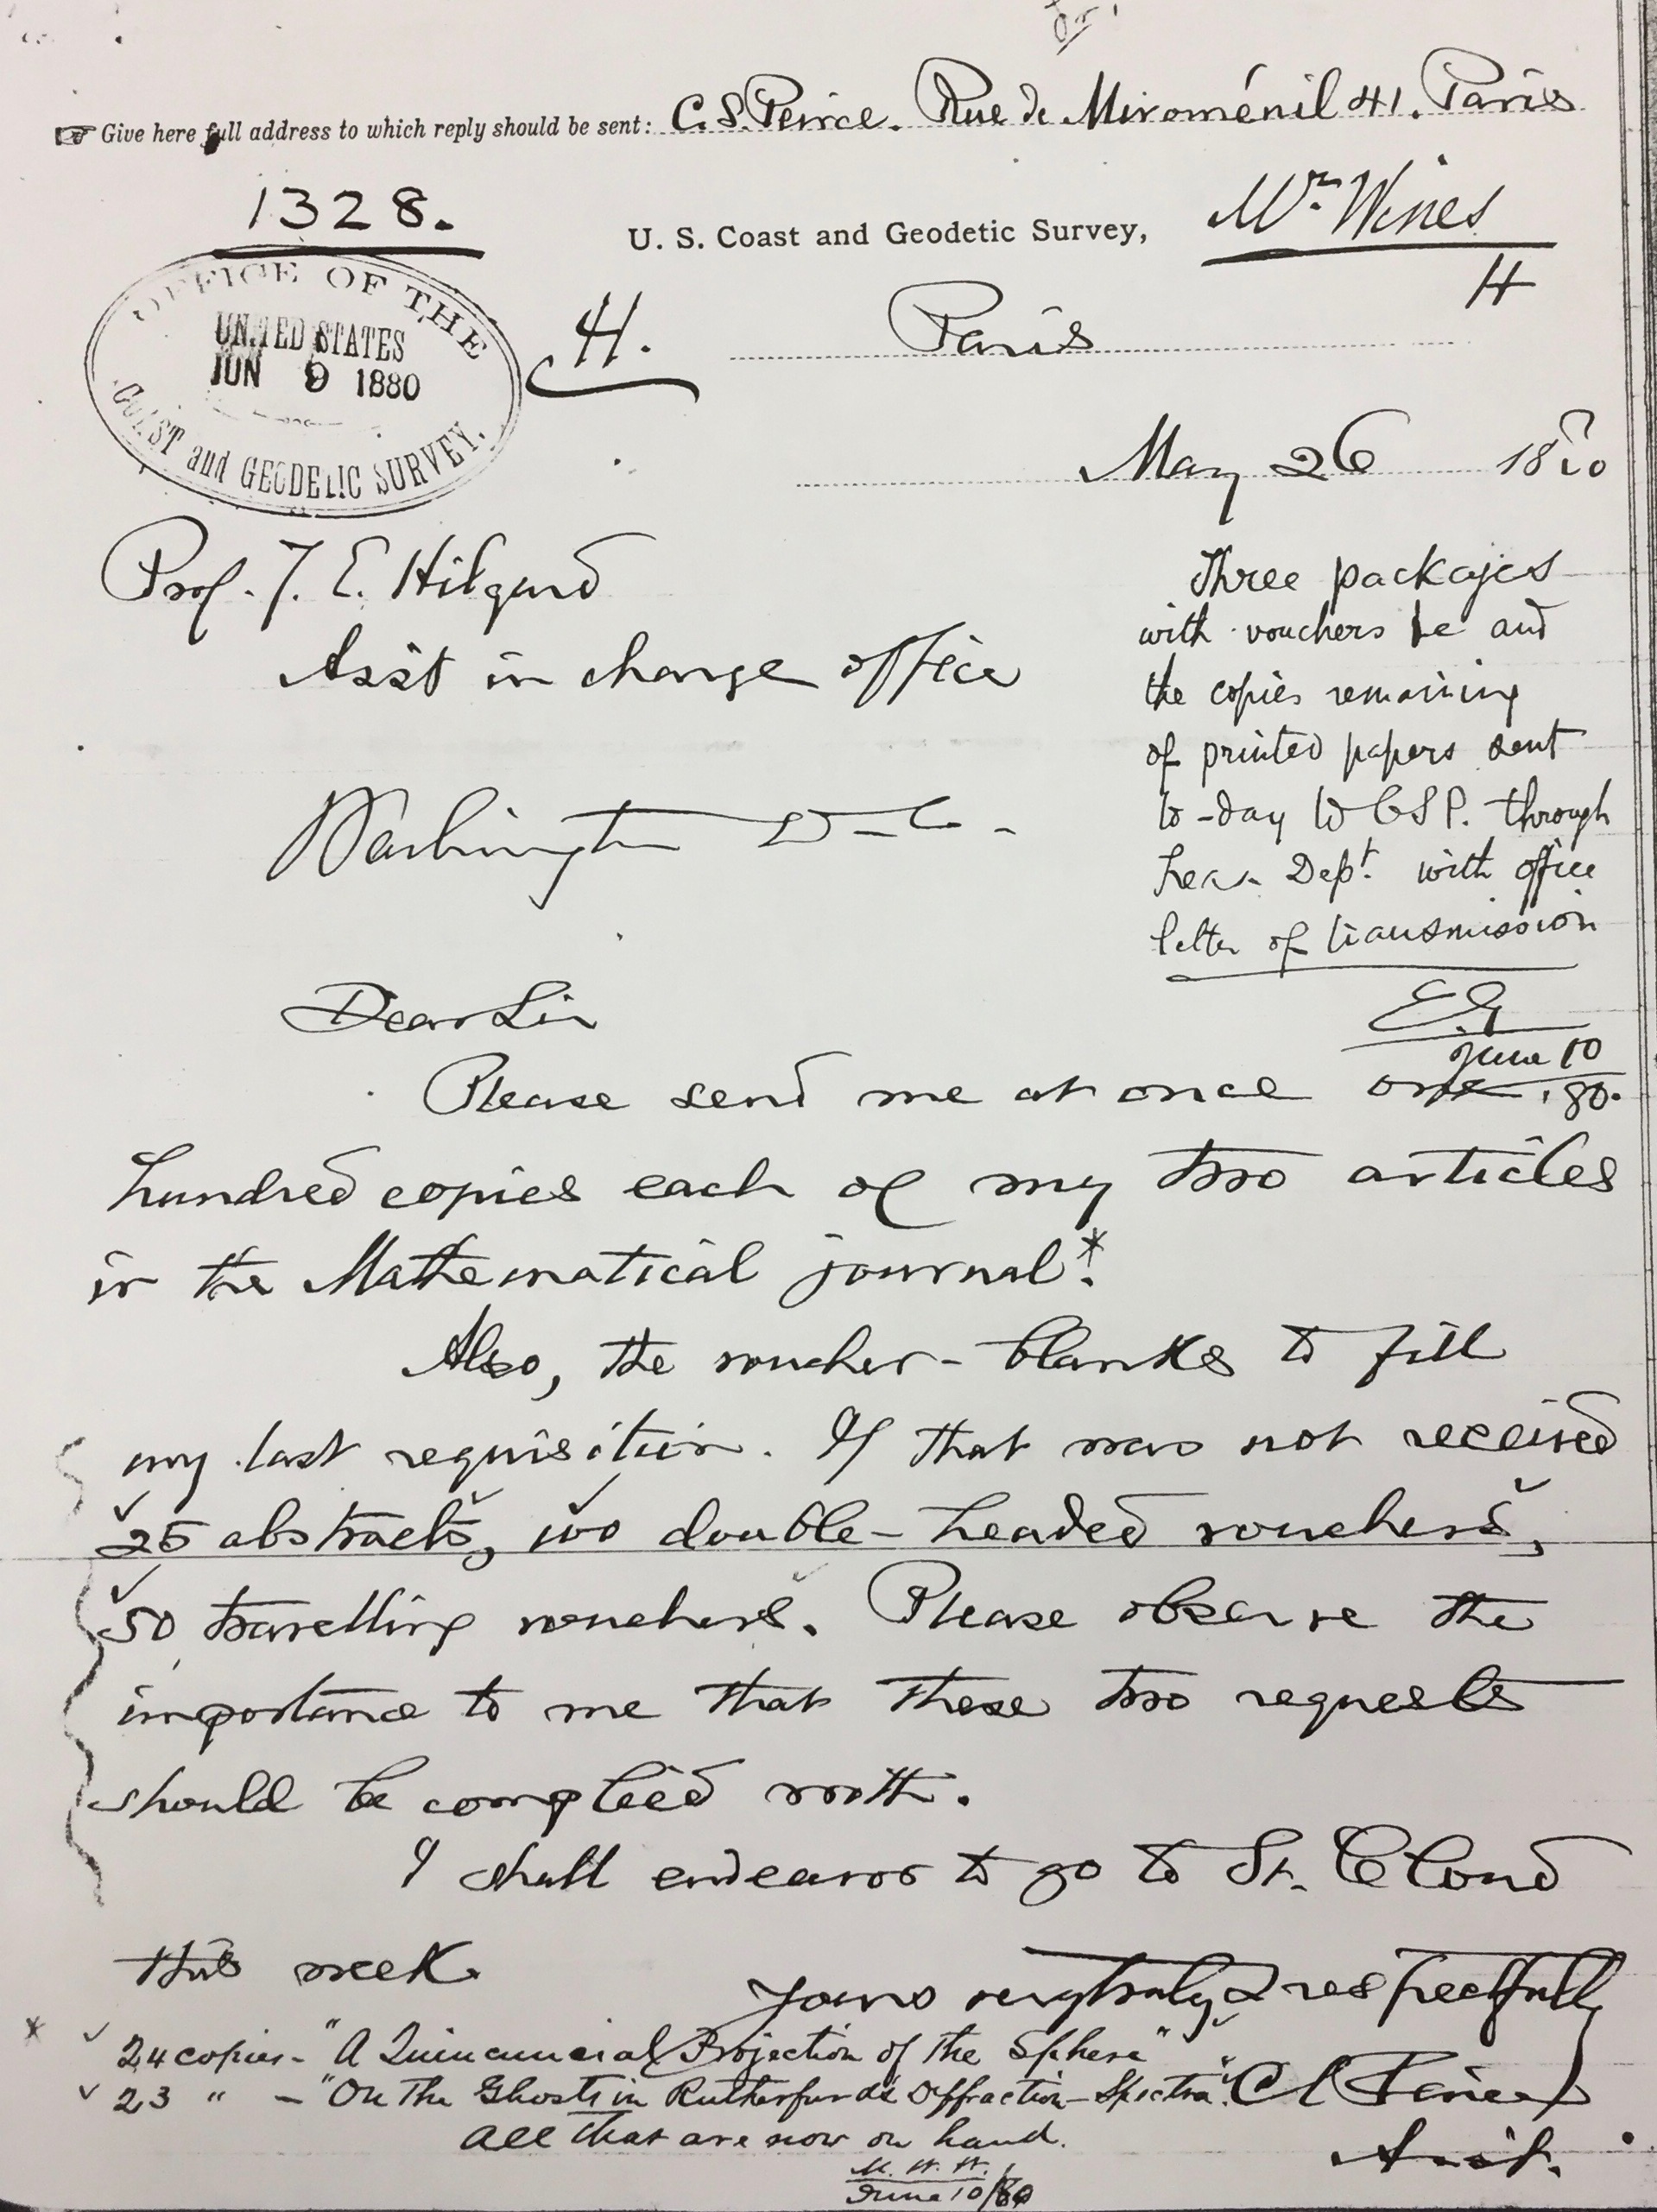 ☞ Give here full address to which reply should be sent: C. S. Peirce. Rue de Miroménil 41. Paris
1328.
U. S. Coast and Geodetic Survey,
Mr. Wines
H
OFFICE OF THE
UNITED STATES
JUN 9 1880
COAST and GEODETIC SURVEY.
H.
Paris
May 26 1880
Prof. J. E. Hilgard
Asst in charge office
Washington D. C.
Three packages
with vouchers &c and
the copies remaining
of printed papers sent
to-day to CSP. through
Dept. with office
letter of transmission
E.G
June 10
.80.
Dear Sir
Please send me at once one
hundred copies each of my two articles
in the Mathematical journal.*
Also, the voucher-blanks to fill
my last requisition. If that was not received
25 abstracts, 100 double-headed vouchers,
50 travelling vouchers. Please observe the
importance to me that these two requests
should be complied with.
I shall endeavor to go to St. Cloud
this week.
Yours very truly & respectfully
C S Peirce
Asst.
* ✓ 24 copies - "A Quincuncial Projection of the Sphere"
✓ 23 " - "On The Ghosts in Rutherfurd's Diffraction-Spectra".
All that are now on hand.
M. W. W.
June 10/80